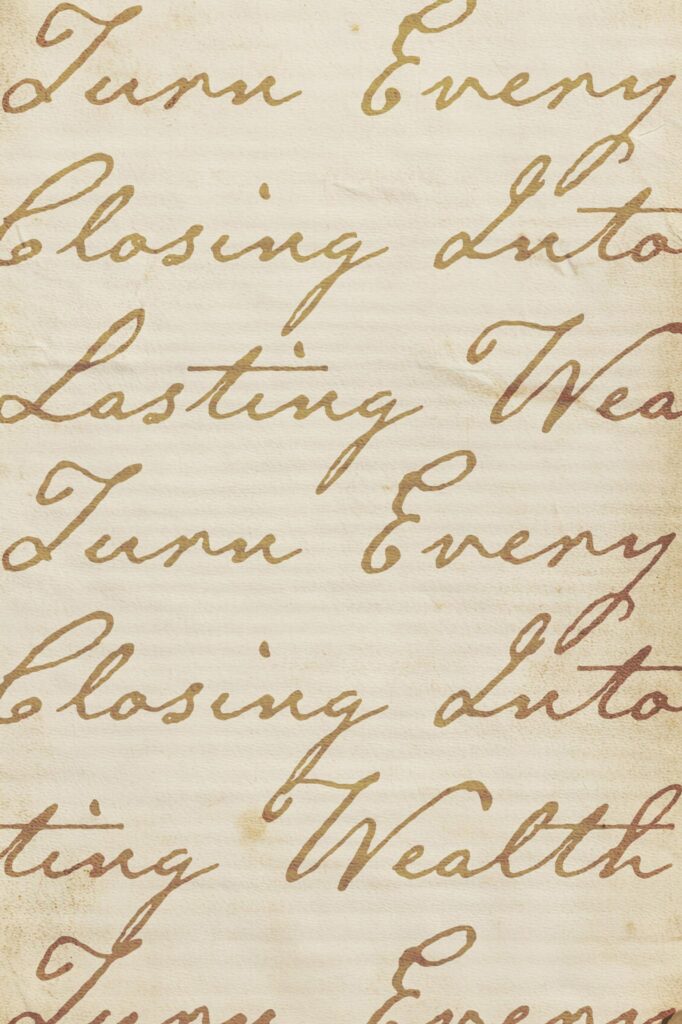 Turn Every
Closing Into
Lasting Wea
Turn Every
Closing Into
ting Wealth
Turn Every